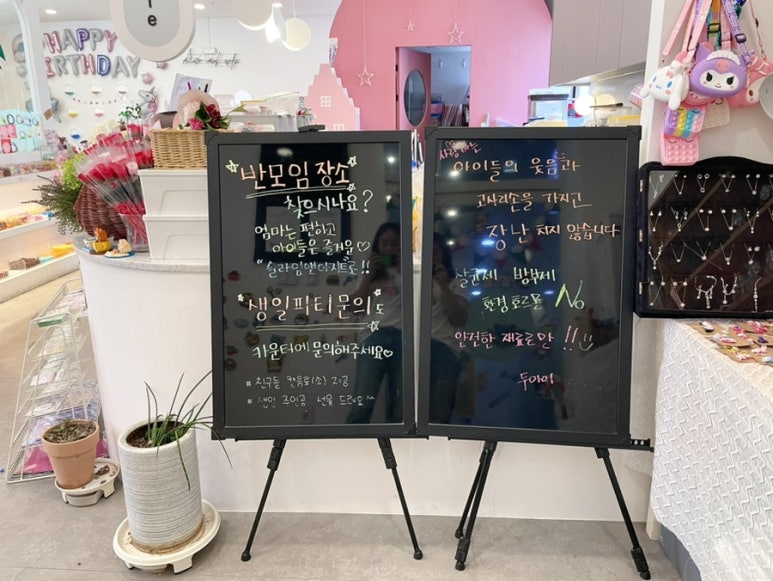 HAPPY
BIRTHDAY
반모임 장소
찾으시나요?
엄마는 편하고
아이들은 즐거운♡
"슬라임앤아지트로!!
생일파티문의도
카운터에 문의해주세요♡
# 친구들 컨음료(소) 제공
# 생일 주인공 선물 드려요^^
사랑하는
아이들의 웃음과
고사리손을 가지고
장난 치지 않습니다
살균제 방부제
환경호르몬 No
안전한 재료만!!
두아이